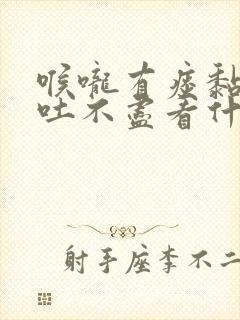 喉嚨有痰黏
吐不盡者什
射手座李不二